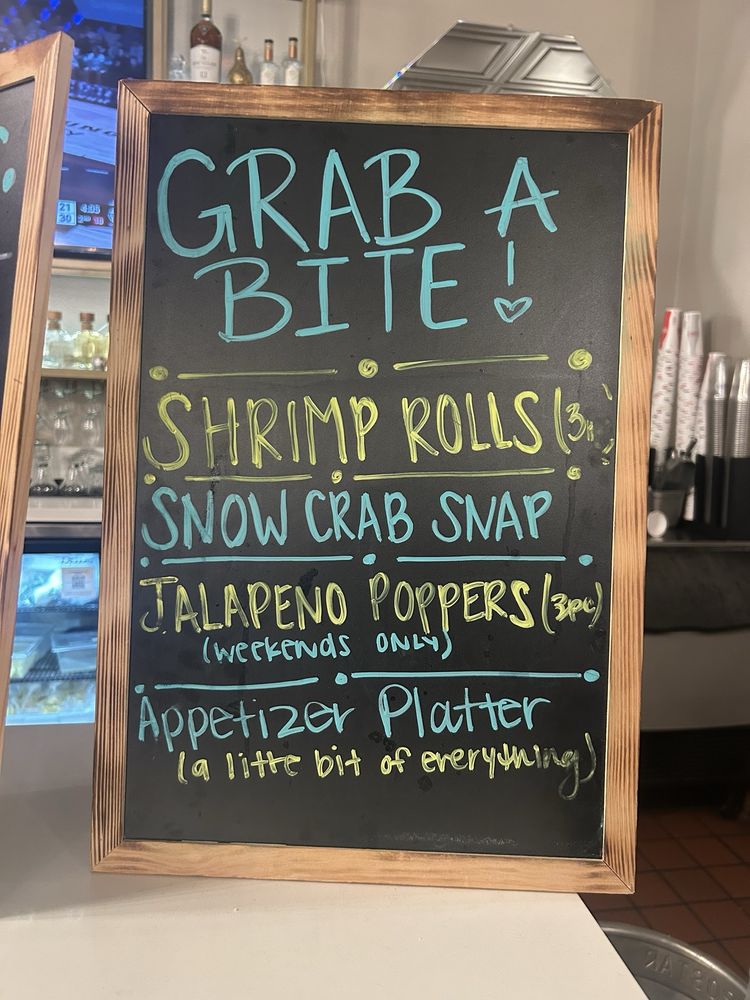 GRAB A
BITE!
SHRIMP ROLLS (3
SNOW CRAB SNAP
JALAPENO POPPERS (3pc)
(weekends ONLY)
Appetizer Platter
(a litte bit of everything)
21
30